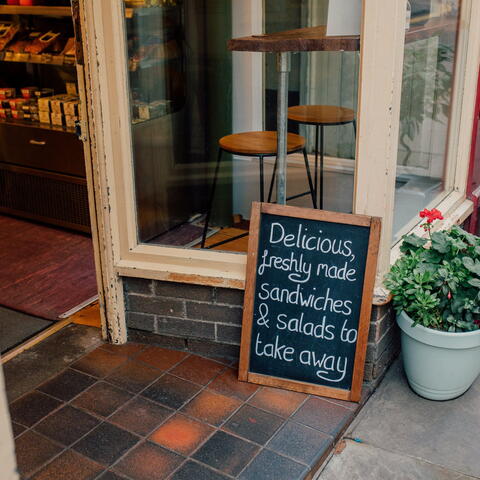 Delicious,
freshly made
sandwiches
& salads to
take away